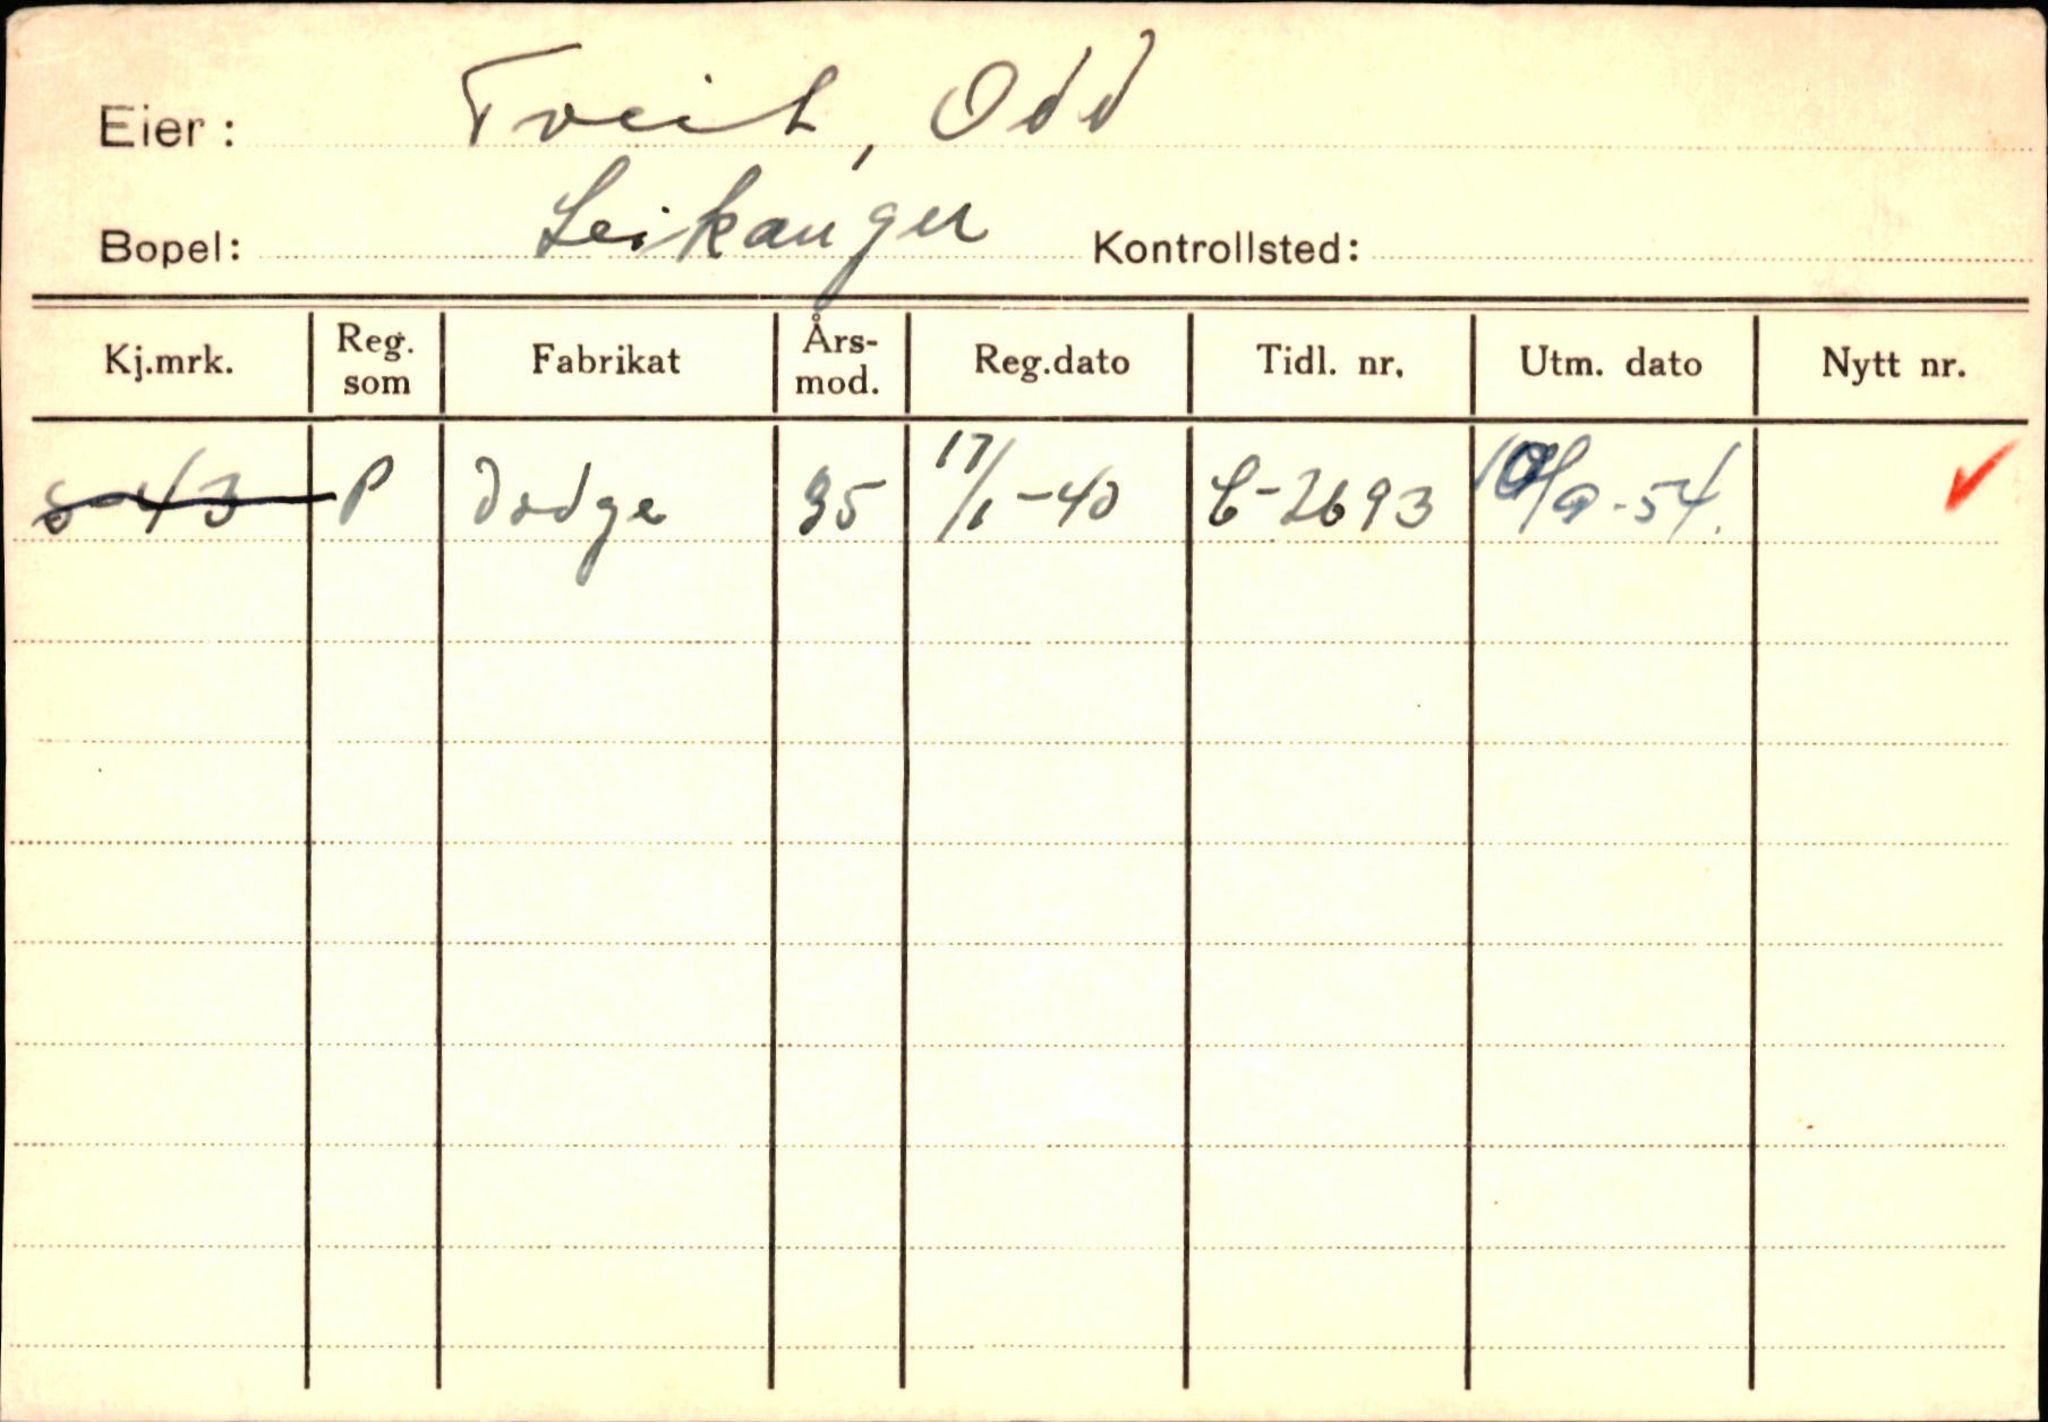 Eier: Tveit, Odd
Bopel: Leikanger Kontrollsted:
Kj.mrk. Reg. som Fabrikat Års-mod. Reg.dato Tidl. nr. Utm. dato Nytt nr.
S-43 P Dodge 35 17/1-40 C-2693 10/9-54. ✓